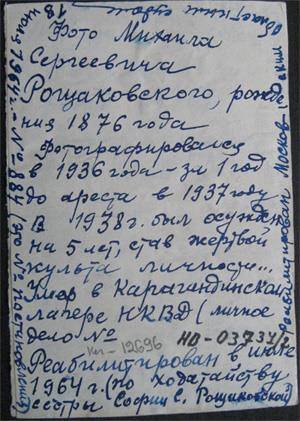 Фото Михаила
Сергеевича
Рощаковского, рожде
ния 1876 года
Фотографировался
в 1936 году - за 1 год
до ареста в 1937 году
В 1938 г. был осужден
на 5 лет, став жертвой
культа личности...
Умер в Карагандинском
лагере НКВД (личное
дело №
Кп-12696
НО-03734/2
Реабилитирован в июне
1964 г. (по ходатайству
сестры Софии С. Рощаковской)
реабилитирован Москов
ским
областным судом
18
июня 1964 г. № 884 (это № постановления)